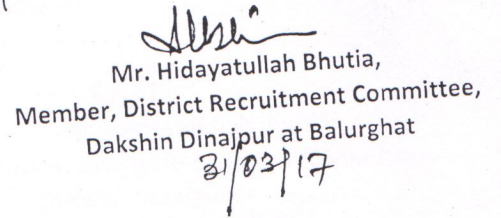 Mr. Hidayatullah Bhutia,
Member, District Recruitment Committee,
Dakshin Dinajpur at Balurghat
31/03/17